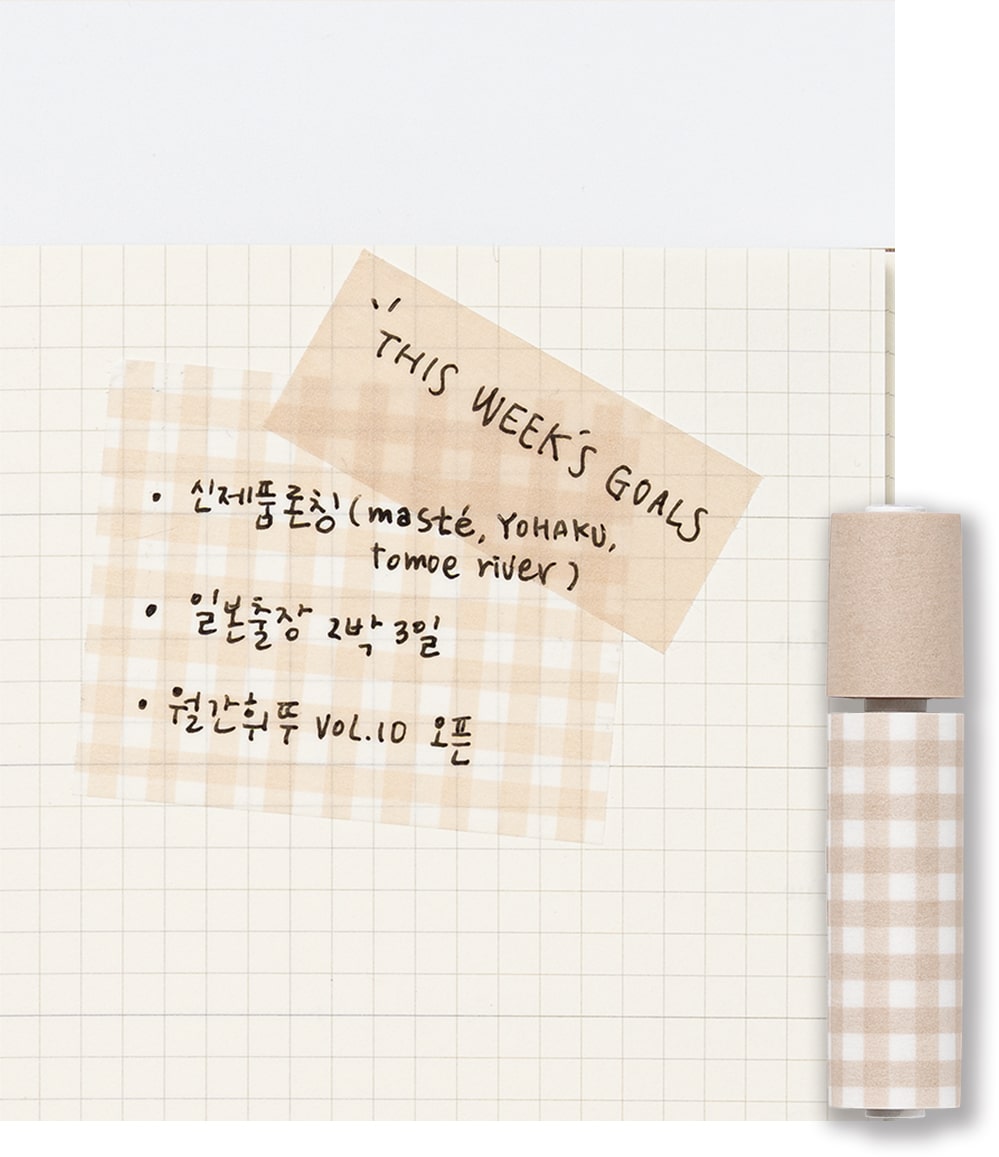 THIS WEEK'S GOALS
• 신제품론칭 (masté, YOHAKU,
tomoe river)
• 일본출장 2박 3일
• 월간휘뚜 VOL.10 오픈